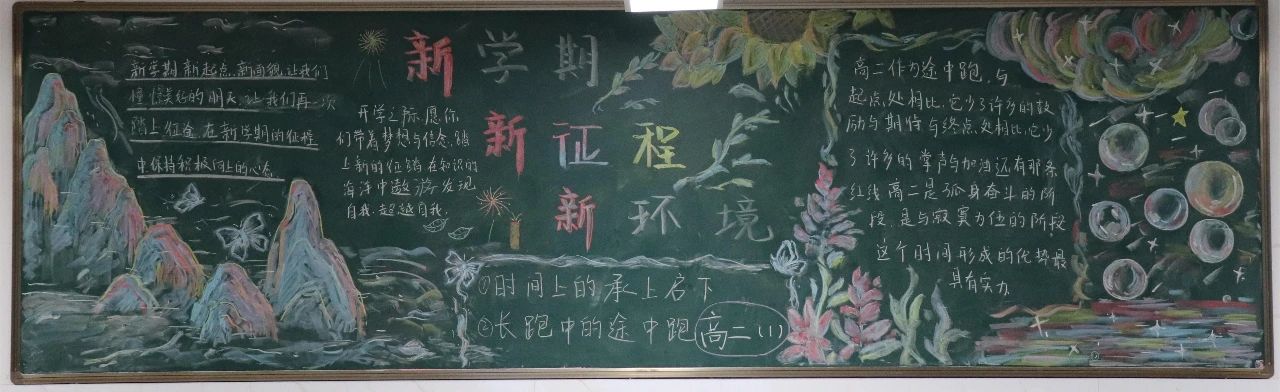 新学期 新起点 新面貌 让我们
憧憬美好的明天 让我们再一次
踏上征途 在新学期的征程
中保持积极向上的心态
开学之际 愿你
们带着梦想与信念 踏
上新的征途 在知识的
海洋中遨游 发现
自我 超越自我.
新学期
新征程
新环境
①时间上的承上启下
②长跑中的途中跑 高二(1)
高二作为途中跑，与
起点处相比，它少了许多的鼓
励与期待 与终点处相比，它少
了许多的掌声与加油 还有那条
红线 高二是孤身奋斗的阶
段，是与寂寞为伍的阶段
这个时间形成的优势最
具有实力